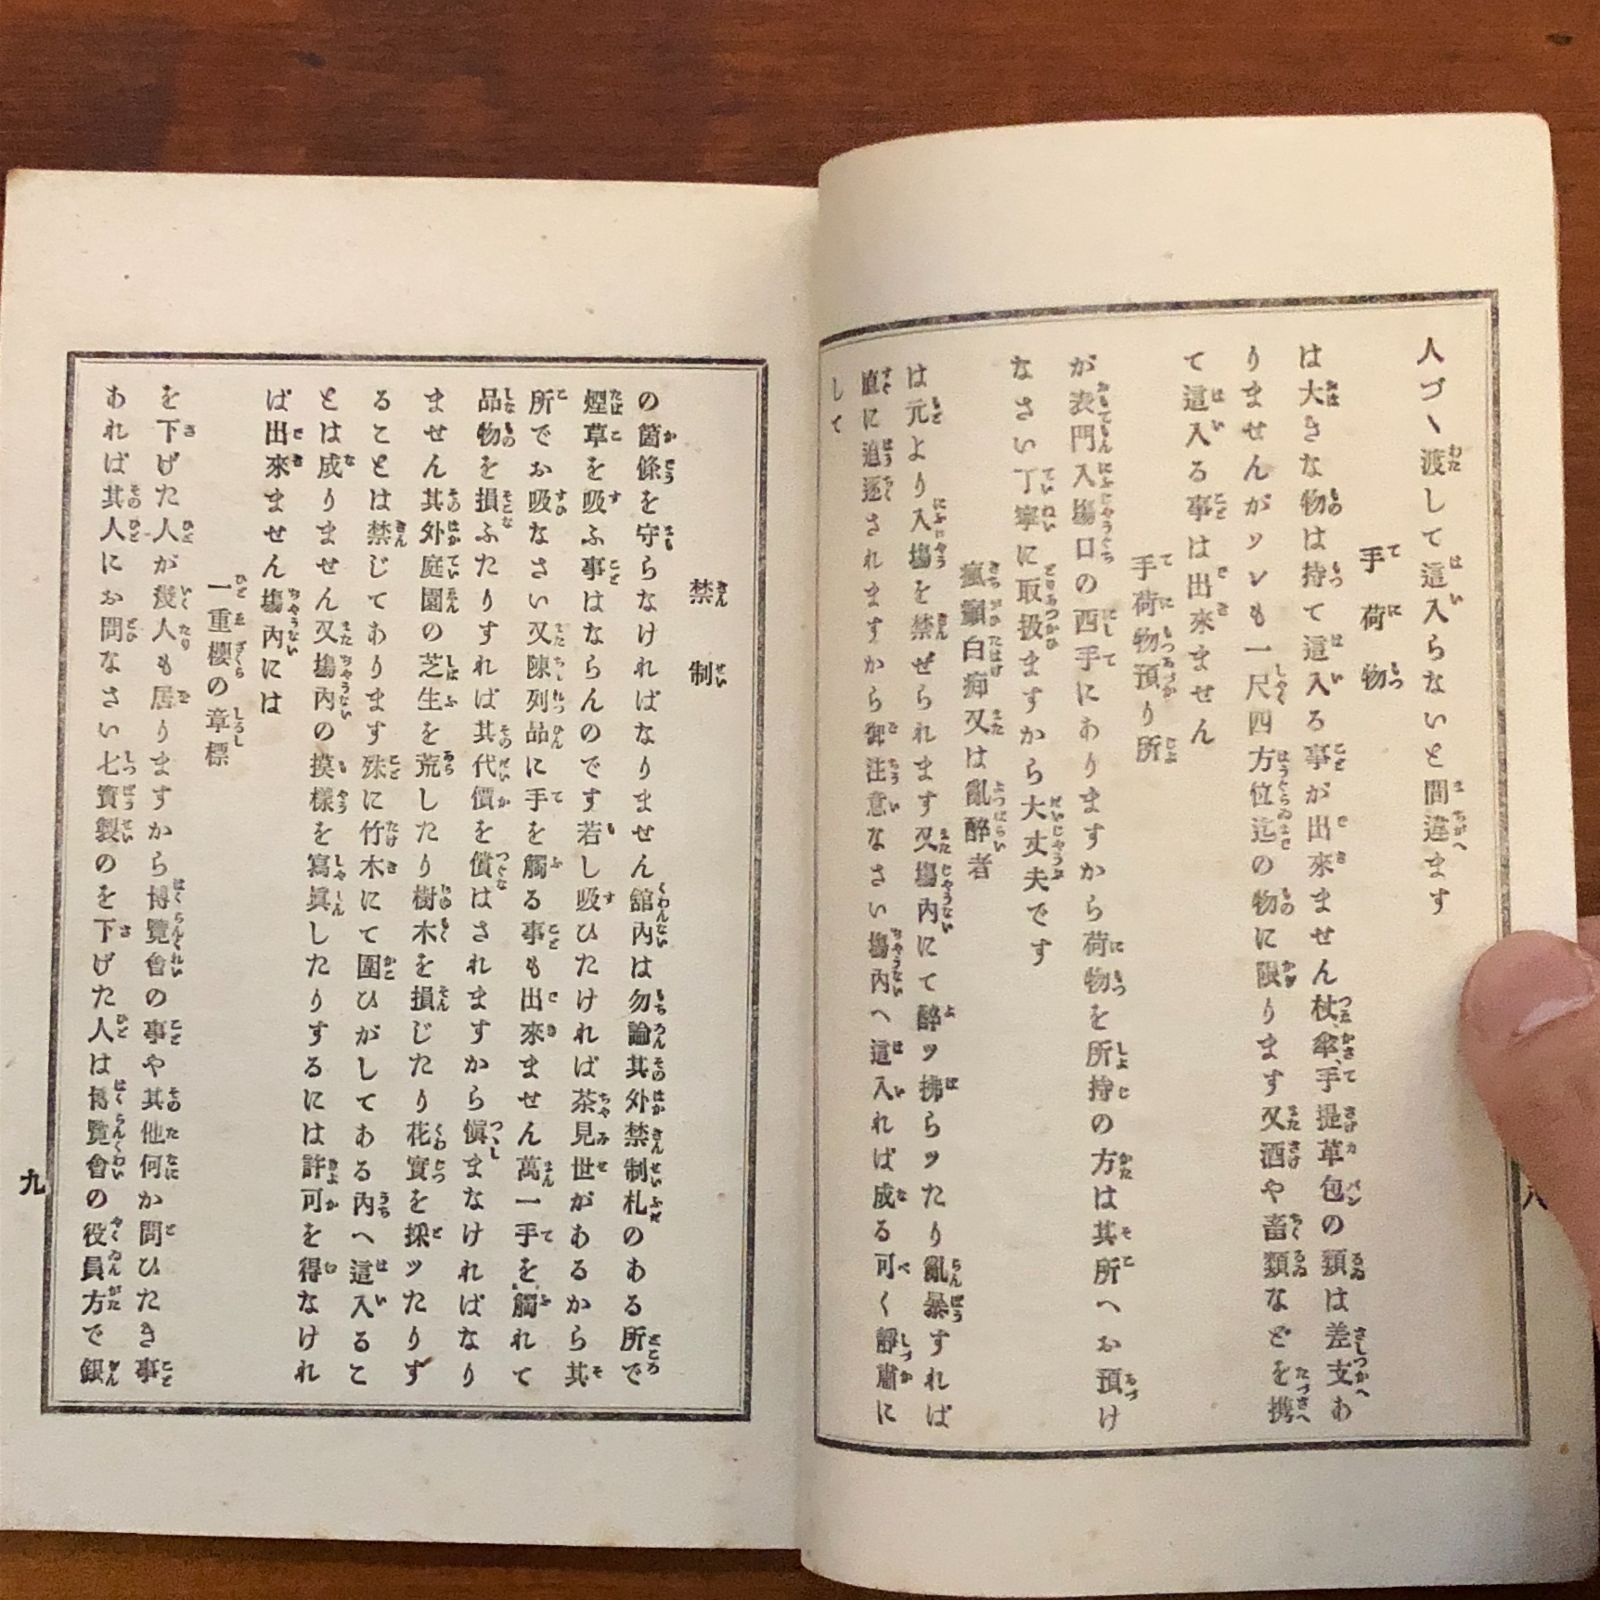 人づヽ渡して這入らないと間違ます
手荷物
は大きな物は持て這入る事が出來ません杖、傘、手提革包の類は差支わ
りませんがソレも一尺四方位迄の物に限ります又酒や畜類などを携
て這入る事は出來ません
手荷物預り所
が表門入塲口の西手にありますから荷物を所持の方は其所へお預け
なさい丁寧に取扱ますから大丈夫です
瘋癲白痴又は亂醉者
は元より入塲を禁ぜられます又塲内にて醉ッ拂らッたり亂暴すれば
直に追逐されますから御注意なさい塲内へ這入れば成る可く靜肅に
して
八
禁制
の箇條を守らなければなりません舘内は勿論其外禁制札のある所で
煙草を吸ふ事はならんのです若し吸ひたければ茶見世があるから其
所でお吸なさい又陳列品に手を觸る事も出來ません萬一手を觸れて
品物を損ふたりすれば其代價を償はされますから愼まなければなり
ません其外庭園の芝生を荒したり樹木を損じたり花實を採ッたりす
ることは禁じてあります殊に竹木にて圍ひがしてある内へ這入るこ
とは成りません又塲内の摸樣を寫眞したりするには許可を得なけれ
ば出來ません塲内には
一重櫻の章標
を下げた人が幾人も居りますから博覽會の事や其他何か問ひたき事
あれば其人にお問なさい七寳製のを下げた人は博覽會の役員方で銀
九